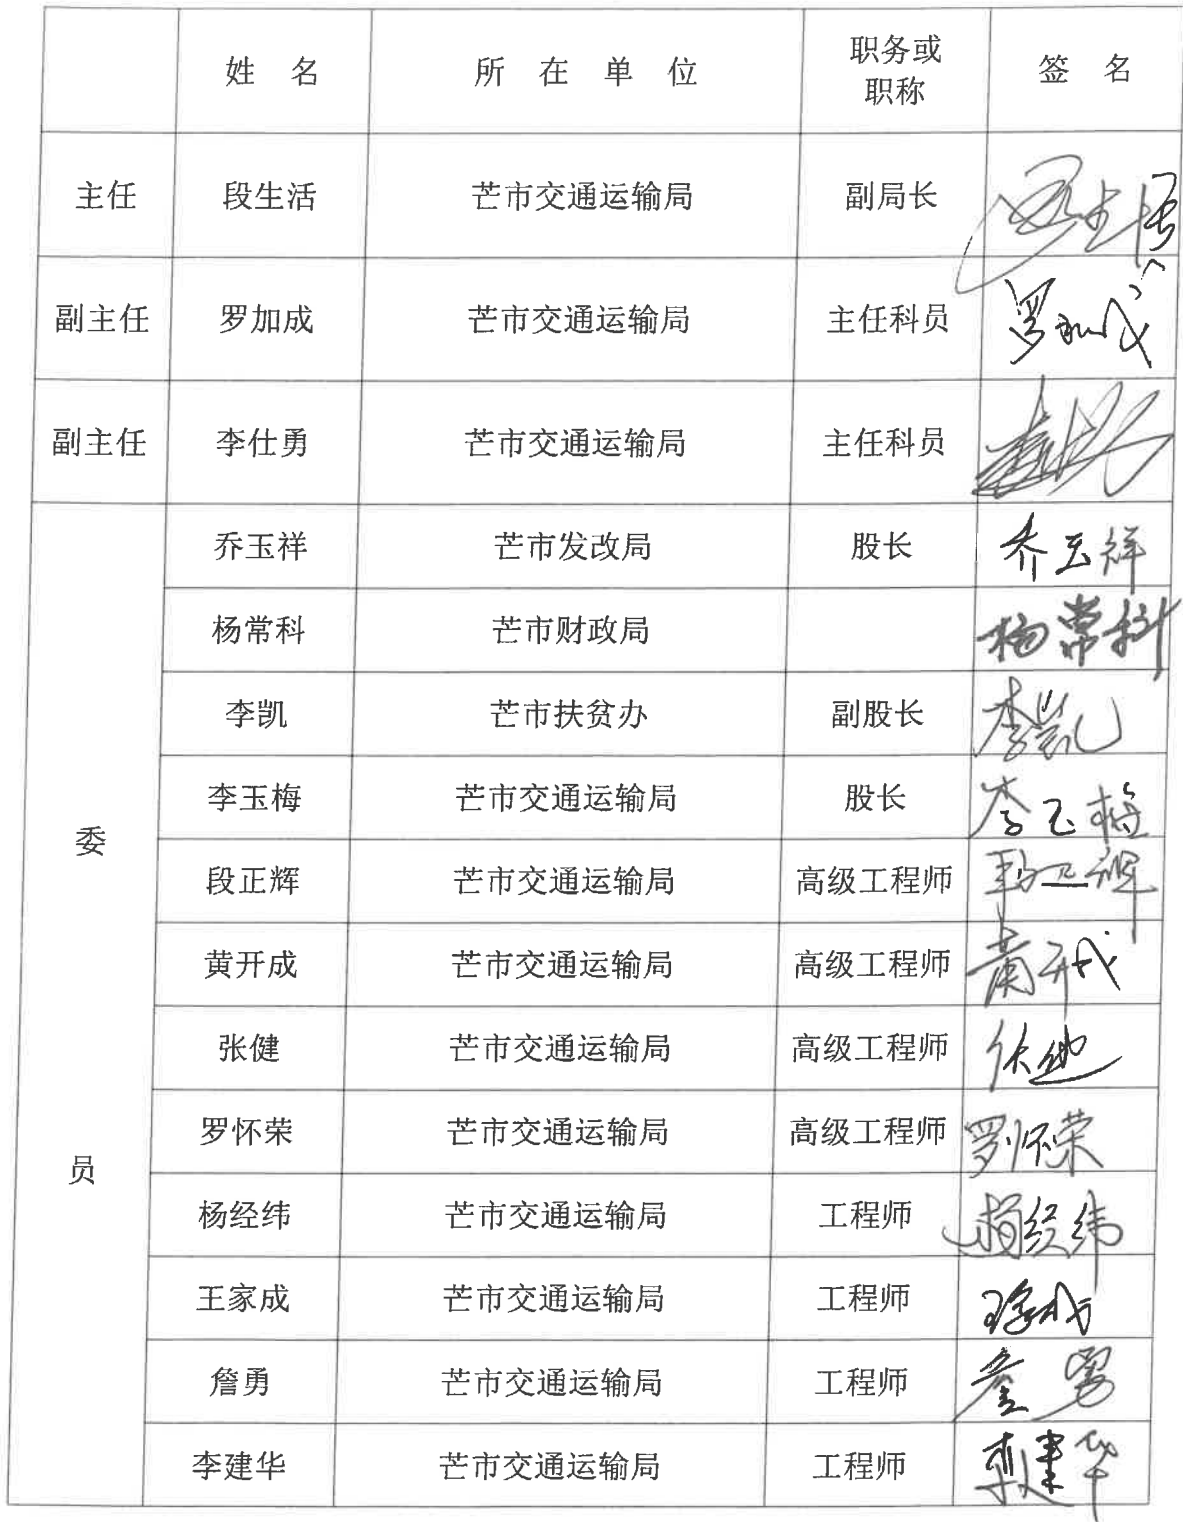 姓 名 所 在 单 位 职务或 签 名
职称
主任 段生活 芒市交通运输局 副局长 段生活
副主任 罗加成 芒市交通运输局 主任科员 罗加成
副主任 李仕勇 芒市交通运输局 主任科员
乔玉祥 芒市发改局 股长 乔玉祥
杨常科 芒市财政局 杨常科
李凯 芒市扶贫办 副股长 李凯
李玉梅 芒市交通运输局 股长 李玉梅
委
段正辉 芒市交通运输局 高级工程师 段正辉
黄开成 芒市交通运输局 高级工程师 黄开成
张健 芒市交通运输局 高级工程师 张健
罗怀荣 芒市交通运输局 高级工程师 罗怀荣
员
杨经纬 芒市交通运输局 工程师 杨经纬
王家成 芒市交通运输局 工程师 王家成
詹勇 芒市交通运输局 工程师 詹勇
李建华 芒市交通运输局 工程师 李建华